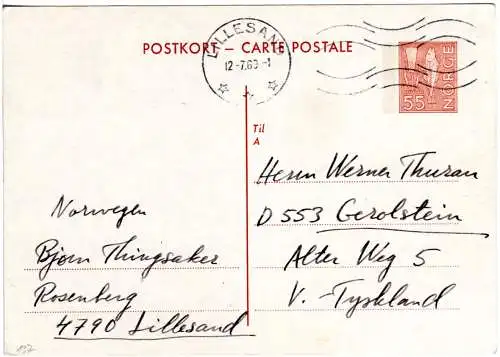 POSTKORT – CARTE POSTALE
LILLESAND
12-7.69-1
55
NORGE
Til
A
Herrn Werner Thuran
D 553 Gerolstein
Alter Weg 5
V. - Tyskland
Norwegen
Bjørn Thingsaker
Rosenberg
4790 Lillesand